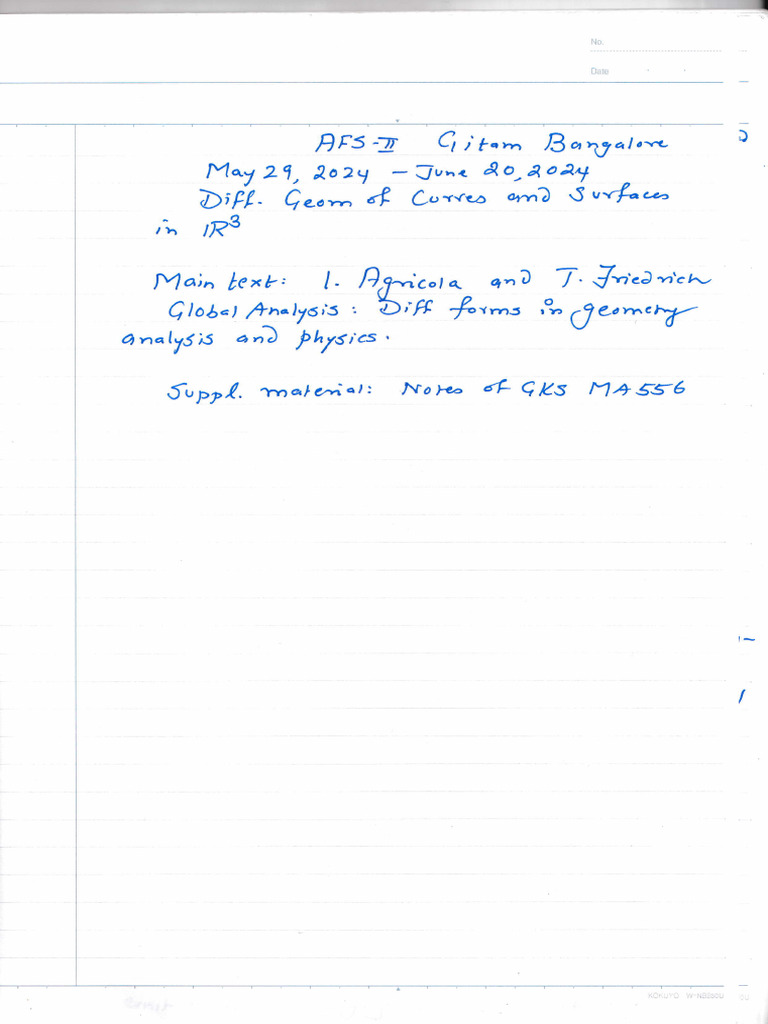 No.
Date
AFS-II Gitam Bangalore
May 29, 2024 – June 20, 2024
Diff. Geom of Curves and Surfaces
in IR³
Main text: I. Agricola and T. Friedrich
Global Analysis: Diff forms in geometry
analysis and physics.
Suppl. material: Notes of GKS MA556
KOKUYO